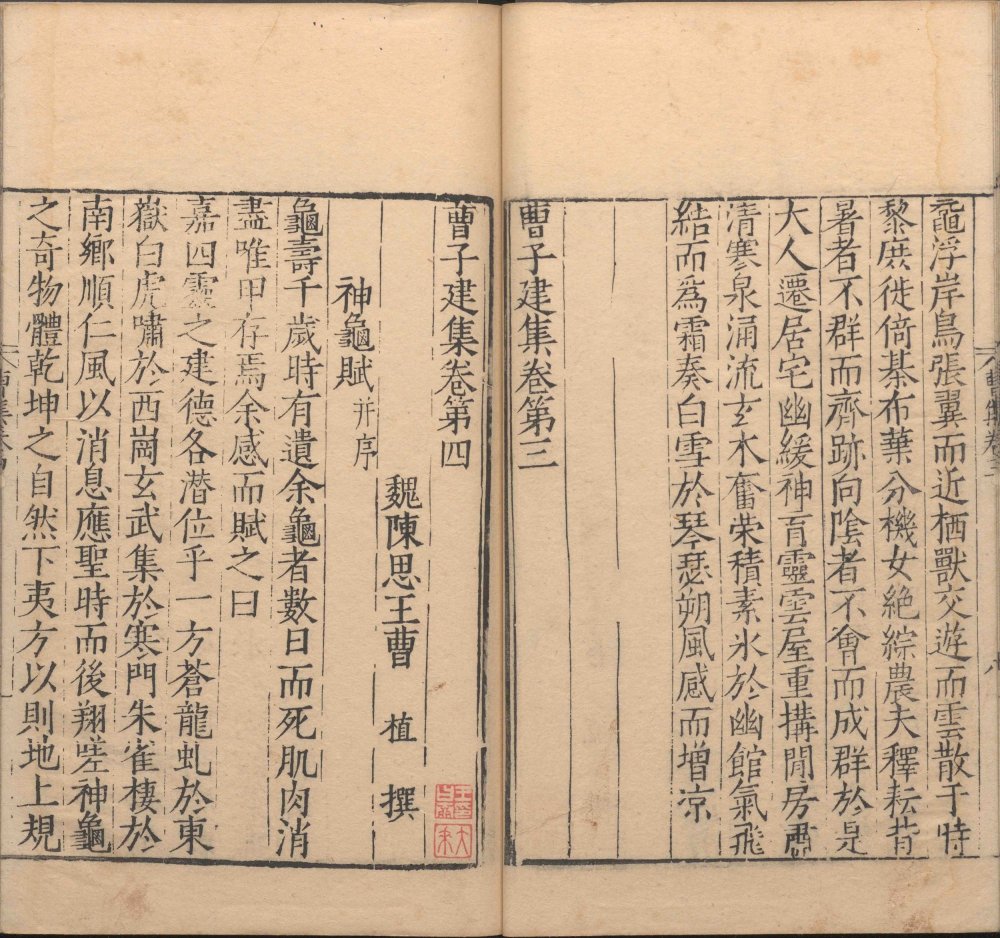 黿浮岸鳥張翼而近栖獸交遊而雲散于時
黎庶徙倚棊布葉分機女絶綜農夫釋耘背
暑者不群而齊跡向陰者不會而成群於是
大人遷居宅幽緩神育靈雲屋重搆閒房肅
清寒泉涌流玄木奮荣積素氷於幽館氣飛
結而爲霜奏白雪於琴瑟朔風感而增凉
曹子建集卷第三
曹子建集卷第四
魏陳思王曹植撰
神龜賦并序
龜壽千歲時有遺余龜者數日而死肌肉消
盡唯甲存焉余感而賦之曰
嘉四靈之建德各潛位乎一方蒼龍虬於東
嶽白虎嘯於西崗玄武集於寒門朱雀棲於
南鄉順仁風以消息應聖時而後翔嗟神龜
之奇物體乾坤之自然下夷方以則地上規